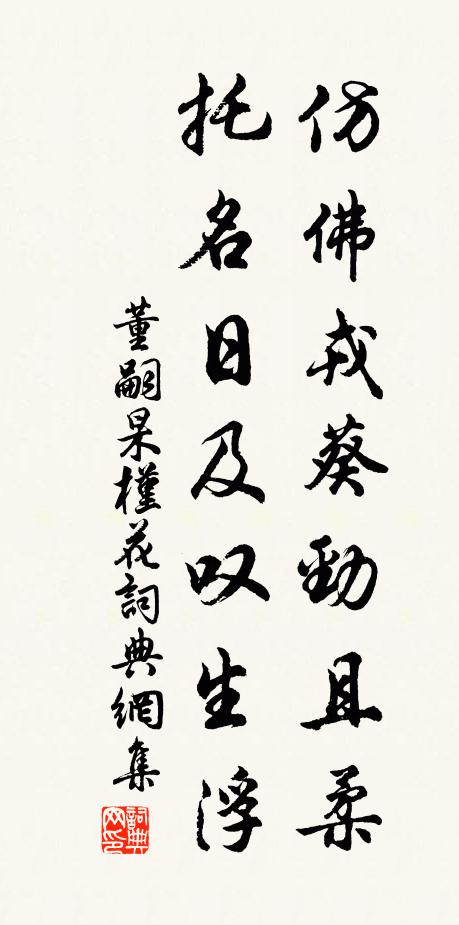 仿佛戎葵勁且柔
托名日及叹生浮
董嗣杲槿花詞典網集
詞典网印